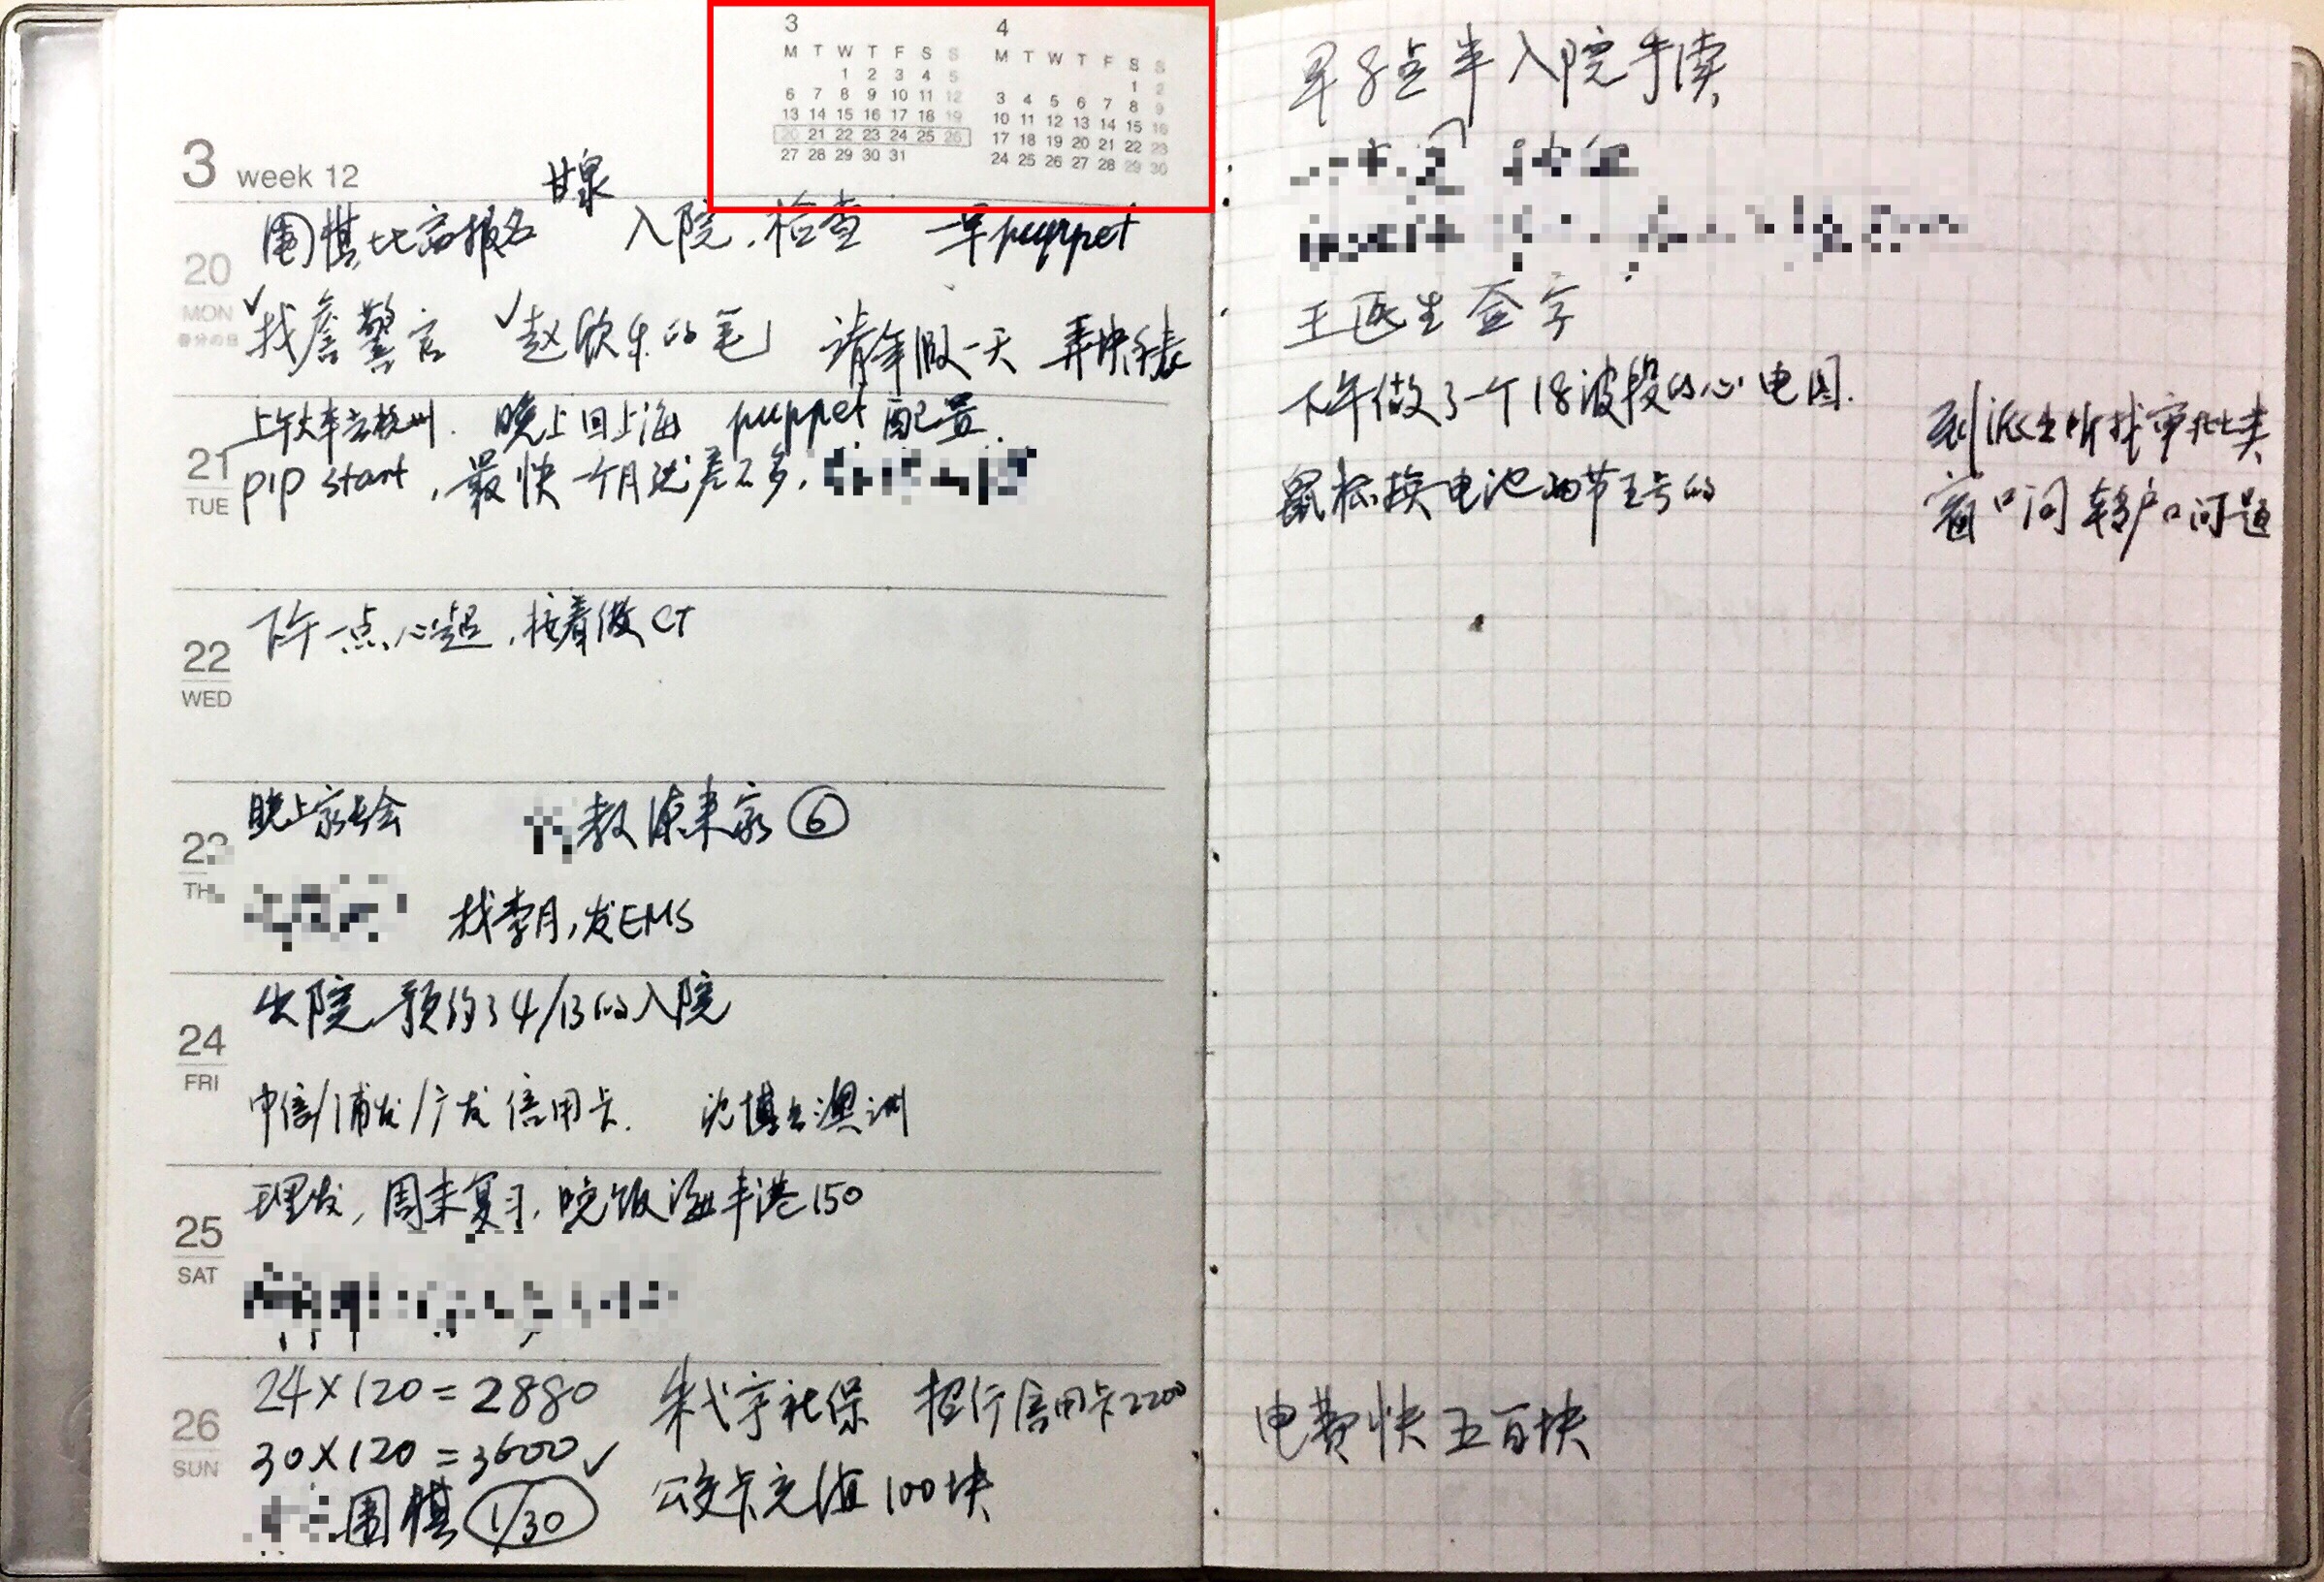 3 4
M T W T F S S M T W T F S S
1 2 3 4 5 1 2
6 7 8 9 10 11 12 3 4 5 6 7 8 9
13 14 15 16 17 18 19 10 11 12 13 14 15 16
20 21 22 23 24 25 26 17 18 19 20 21 22 23
27 28 29 30 31 24 25 26 27 28 29 30
3 week 12
甘泉
20 MON 春分の日
围棋比赛报名 入院,检查 一早puppet
✓找詹警官 ✓赵欣乐的毛 请年假一天 弄块手表
21 TUE
上午火车去杭州. 晚上回上海 puppet 配置.
pip start,最快一个月说差不多,
22 WED
下午一点心超,接着做CT
23
晚上家长会 教 来家 ⑥
找李月,发EMS
24 FRI
出院 预约了4/13的入院
中信/浦发/广发信用卡. 沈博去澳洲
25 SAT
理发,周末复习,晚饭海丰港150
26 SUN
24×120=2880 朱弋宇社保 招行信用卡2200
30×120=3600✓
围棋 1/30 公交卡充值100块
早8点半入院手续
王医生签字
下午做了一个18波段的心电图.
鼠标换电池两节五号的
到派出所找审批类
窗口问转户口问题
电费快五百块